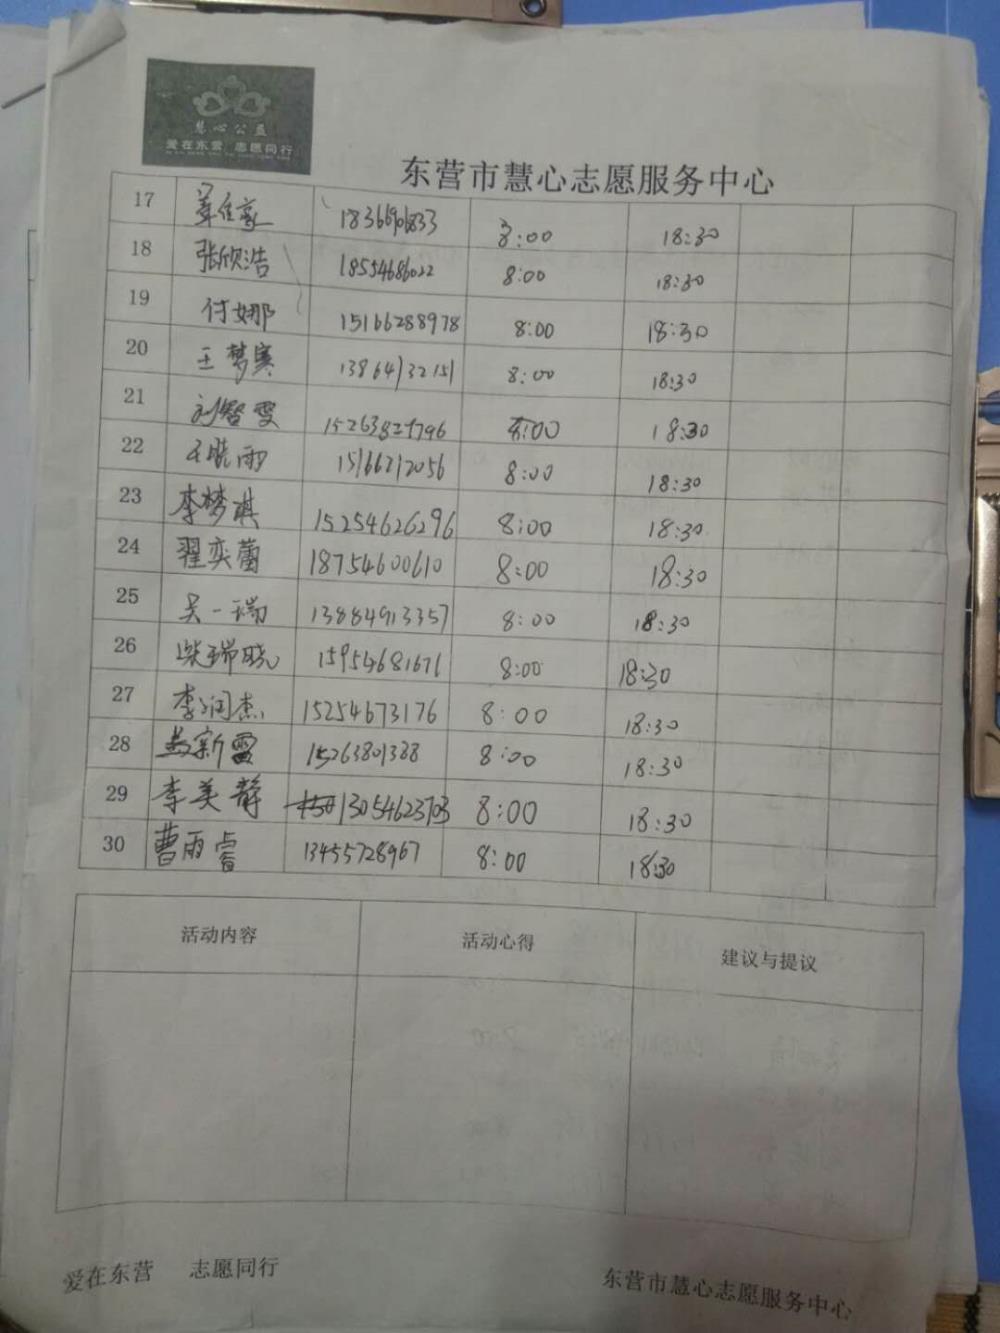 慧心公益
爱在东营 志愿同行
东营市慧心志愿服务中心
17 18366906833 8:00 18:30
18 张欣浩 18554686022 8:00 18:30
19 付娜 15166288978 8:00 18:30
20 王梦寒 13864132151 8:00 18:30
21 刘智雯 8:00 18:30
22 王晓雨 15166212056 8:00 18:30
23 李梦琪 15254626296 8:00 18:30
24 翟奕蕾 18754600610 8:00 18:30
25 吴一瑞 13884913357 8:00 18:30
26 柴瑞晓 15954681671 8:00 18:30
27 李润杰 15254673176 8:00 18:30
28 新雷 15263801388 8:00 18:30
29 李美静 13054623703 8:00 18:30
30 曹雨睿 13455728967 8:00 18:30
活动内容 活动心得 建议与提议
爱在东营 志愿同行 东营市慧心志愿服务中心